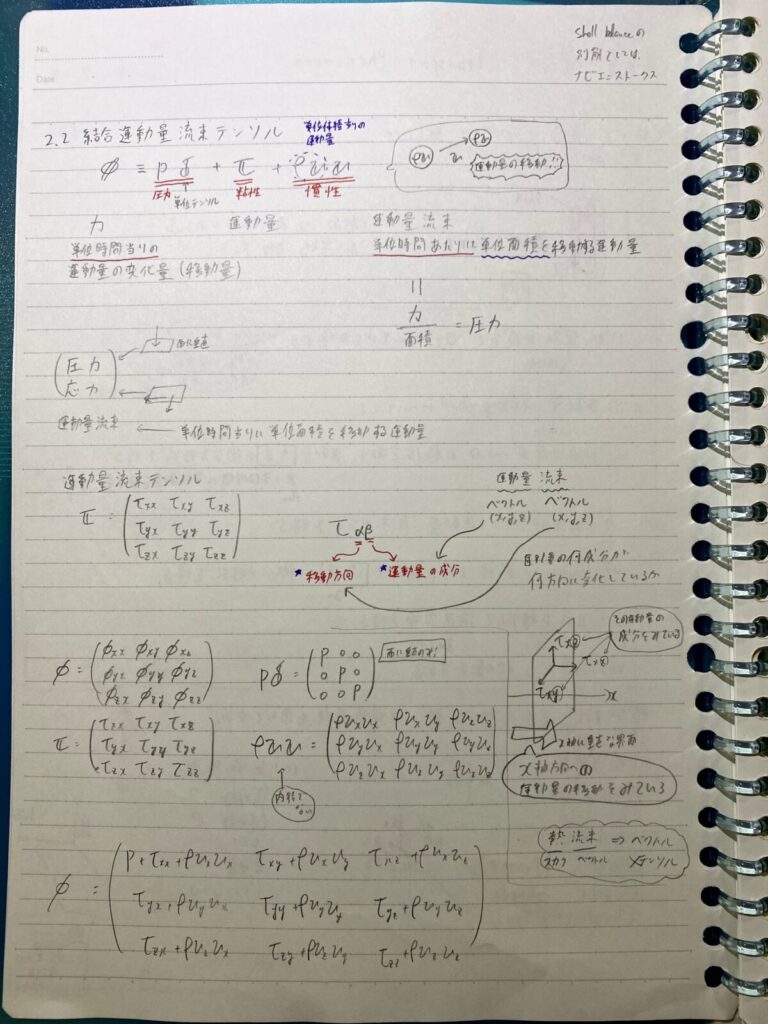 No.
Date
Shell balanceの
別解としては、
ナビエ=ストークス
2.2 結合運動量流束テンソル
単位体積当りの
運動量
φ ≡ pδ + τ + ρuu
圧力 粘性 慣性
単位テンソル
ρu → ρu
u
運動量の移動!!
力 運動量 運動量流束
単位時間当りの
運動量の変化量(移動量)
単位時間あたりに単位面積を移動する運動量
=
力/面積 = 圧力
面に垂直
(圧力
応力)
運動量流束 ← 単位時間当りに単位面積を移動する運動量
運動量流束テンソル
τ = (τxx τxy τxz
τyx τyy τyz
τzx τzy τzz)
ταβ
*移動方向 *運動量の成分
運動量 流束
ベクトル ベクトル
(x,y,z) (x,y,z)
運動量の何成分が
何方向に変化しているか
φ = (φxx φxy φxz
φyx φyy φyz
φzx φzy φzz)
pδ = (p 0 0
0 p 0
0 0 p)
τ = (τxx τxy τxz
τyx τyy τyz
τzx τzy τzz)
ρuu = (ρuxux ρuxuy ρuxuz
ρuyux ρuyuy ρuyuz
ρuzux ρuzuy ρuzuz)
内積で
ない
その運動量の
成分をみている
τxz
τxx
τxy
x
x軸に垂直な界面
x軸方向への
運動量の移動をみている
熱流束 ⇒ ベクトル
スカラ ベクトル ×テンソル
φ = (p+τxx+ρuxux τxy+ρuxuy τxz+ρuxuz
τyx+ρuyux τyy+ρuyuy τyz+ρuyuz
τzx+ρuzux τzy+ρuzuy τzz+ρuzuz)